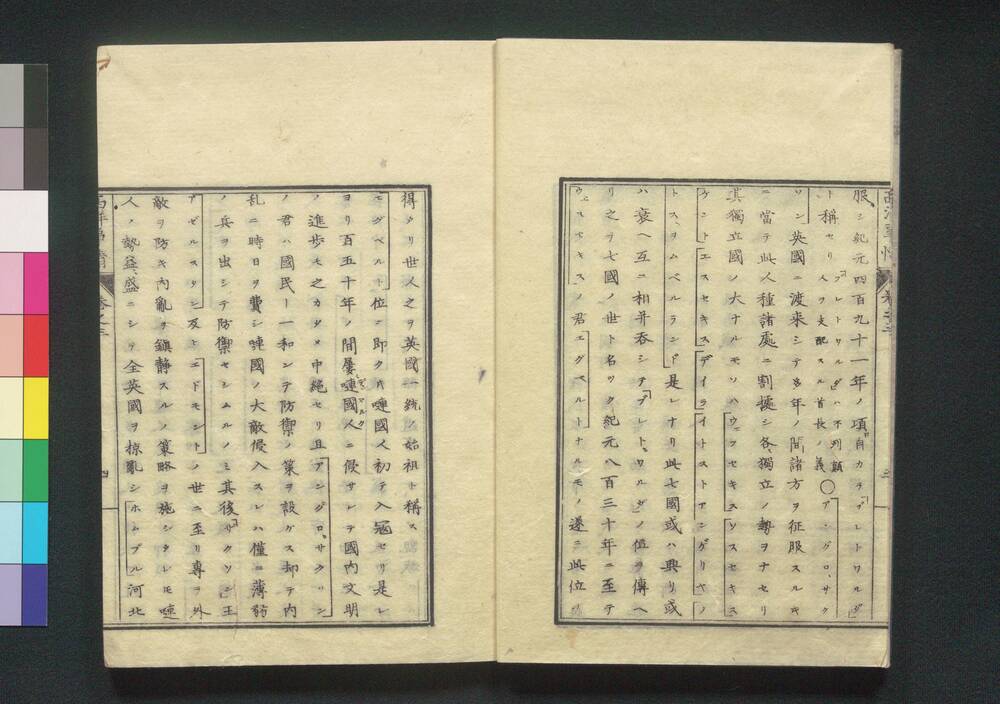 服シ紀元四百九十一年ノ頃自カラ「ブレトワルダ」
ト稱セリ「ブレトワルダ」ハ不列顛人ヲ支配スル首長ノ義○「アングロ、サク
ソン英國ニ渡来シテ百年ノ間諸方ヲ征服スルキ
ニ當テ此人種諸處ニ割據シ各獨立ノ勢ヲナセリ
其獨立國ノ大ナルモノハ「ウッセキス「ソスセキス
「ケント「エスセキス「デイラ「イトストアングリヤ「ノ
トス、ヲムベルランド是レナリ此七國或ハ興リ或
ハ衰ヘ互ニ相并呑シテ「ブレト、ワルダ」ノ位ヲ傳ヘ
リ之ヲ七國ノ世ト名ツク紀元八百三十年ニ至テ
「ウェスセキスノ君「エグベルトナルモノ遂ニ此位ヲ
得タリ世人之ヲ英國一統ノ始祖ト稱ス
「エグベルト位ニ即ク片嗹國人初テ入冦セリ是レ
ヨリ百五十年ノ間屢嗹國人ニ侵サレテ國内文明
ノ進歩モ之カタメ中絶セリ且「アングロ、サクソン
ノ君ハ國民ト一和シテ防禦ノ策ヲ設ケス却テ内
乱ニ時日ヲ費シ嗹國ノ大敵侵入スレハ僅ニ薄弱
ノ兵ヲ出シテ防禦セシムルノミ其後「サクソン王
「アゼルスタン及ヒ「エドモントノ世ニ至リ專ラ外
敵ヲ防キ内亂ヲ鎮静スルノ策略ヲ施シタレモ嗹
人ノ勢益盛ニシテ全英國ヲ掠亂シ「ホムブル河北